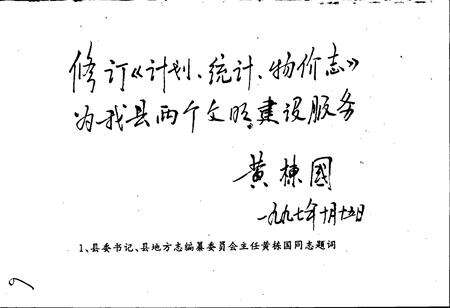 修订《计划、统计、物价志》
为我县两个文明建设服务
黄栋國
一九九七年十月十五日
1、县委书记、县地方志编纂委员会主任黄栋国同志题词